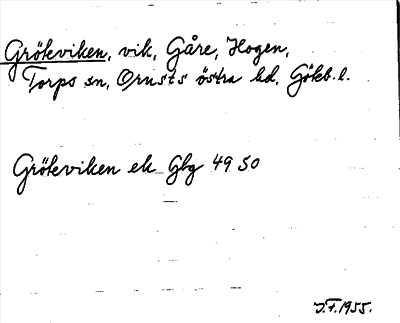 Grökeviken, vik, Gåre, Hogen,
Torps sn, Orusts östra hd, Göteb. l.
Grökeviken ek Gbg 49 50
J.F. 1955.